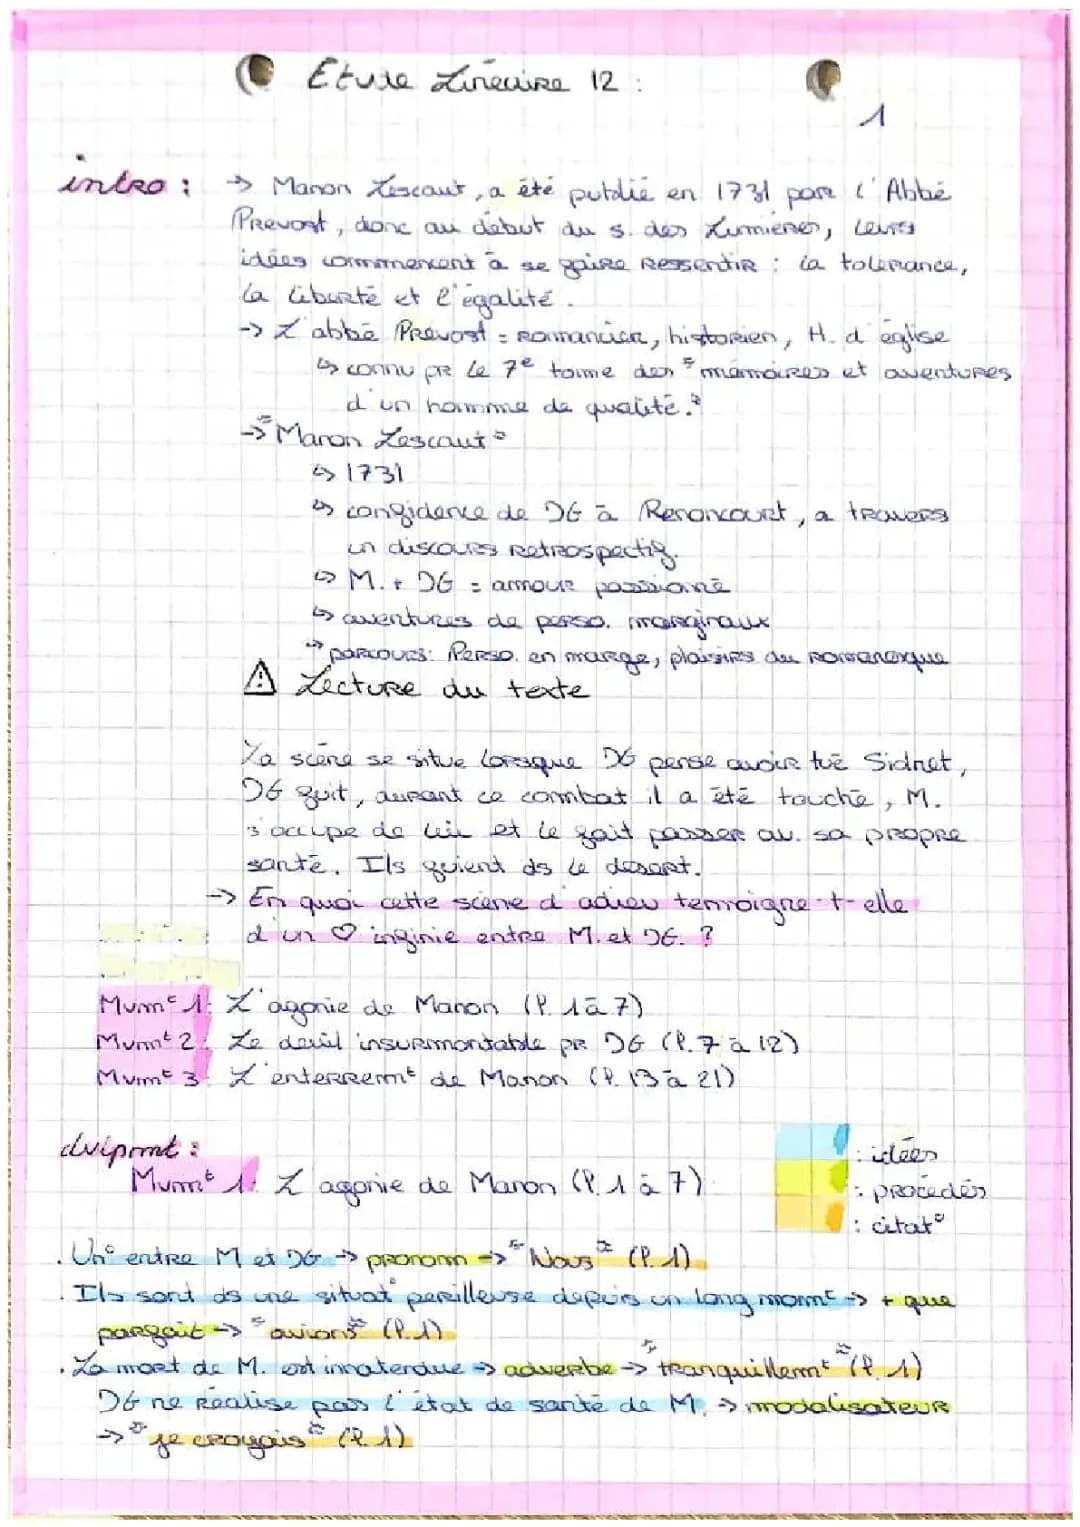 Etude Linéaire 12 :
1
intro : → Manon Lescaut, a été publié en 1731 par l'Abbé
Prevost, donc au début du s. des Lumières, leurs
idées commencent à se faire ressentir : la tolérance,
la liberté et l'égalité.
→ L'abbé Prevost = romancier, historien, H. d'église
↳ connu pr le 7e tome des "mémoires et aventures
d'un homme de qualité."
→ "Manon Lescaut"
↳ 1731
↳ confidence de DG à Renoncourt, a travers
un discours retrospectif.
↳ M. + DG = amour passioné
↳ aventures de perso. marginaux
↳ parcours: Perso. en marge, plaisirs du romanesque
⚠ Lecture du texte
La scène se situe lorsque DG pense avoir tué Sidnet,
DG fuit, durant ce combat il a été touché, M.
s'occupe de lui et le fait passer av. sa propre
santé. Ils fuient ds le désert.
→ En quoi cette scène d'adieu temoigne-t-elle
d'un ♡ infinie entre M. et DG. ?
Mvmt 1: L'agonie de Manon (l. 1 à 7)
Mvmt 2: Le deuil insurmontable pr DG (l. 7 à 12)
Mvmt 3: L'enterremt de Manon (l. 13 à 21)
dvlpmt :
Mvmt 1: L'agonie de Manon (l. 1 à 7)
: idées
: procédés
: citat°
. Un° entre M et DG → pronom → "Nous" (l. 1)
. Ils sont ds une situat° perilleuse depuis un long momt → + que
parfait → "avions" (l. 1)
. La mort de M. est innatendue → adverbe → "tranquillemt" (l. 1)
DG ne réalise pas l'état de santé de M. → modalisateur
→ "je croyais" (l. 1)